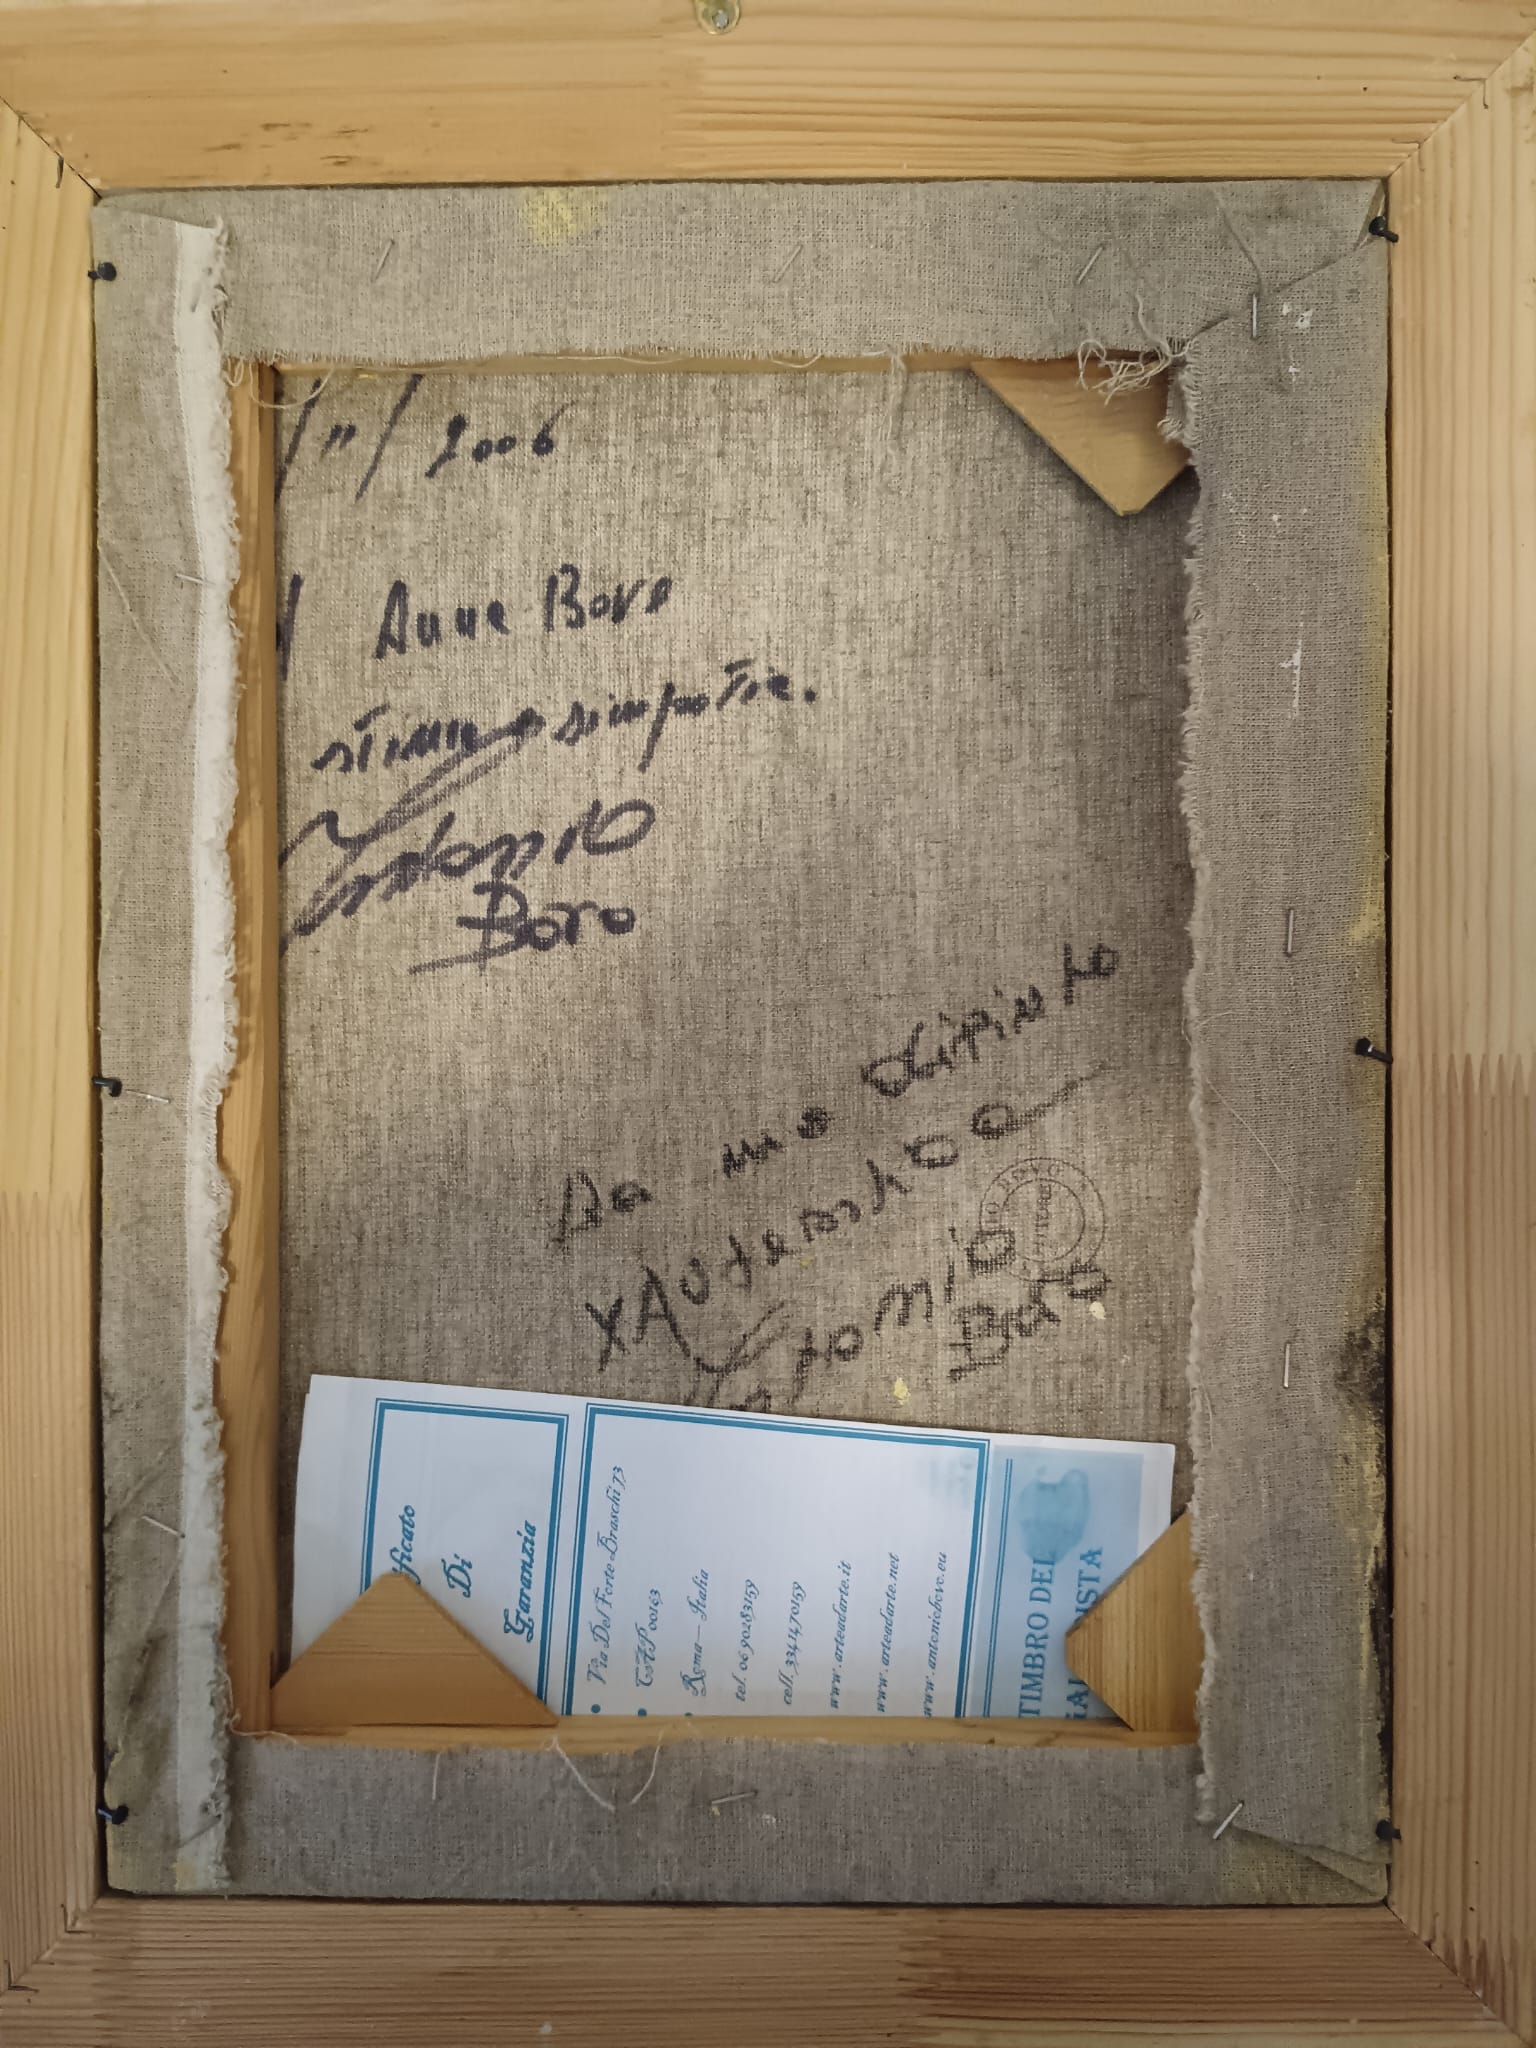 /11/2006
Anna Bovo
stima e simpatia.
Antonio
Bovo
Da me dipinto
x Autentico
Antonio
Bovo
BOVO
PITTORE
ificato
Di
Garanzia
• Via Del Forte Braschi 73
• CAP 00163
• Roma – Italia
tel. 06 90283159
cell. 3341470159
www.arteadarte.it
www.arteadarte.net
www.antoniobovo.eu
TIMBRO DEL